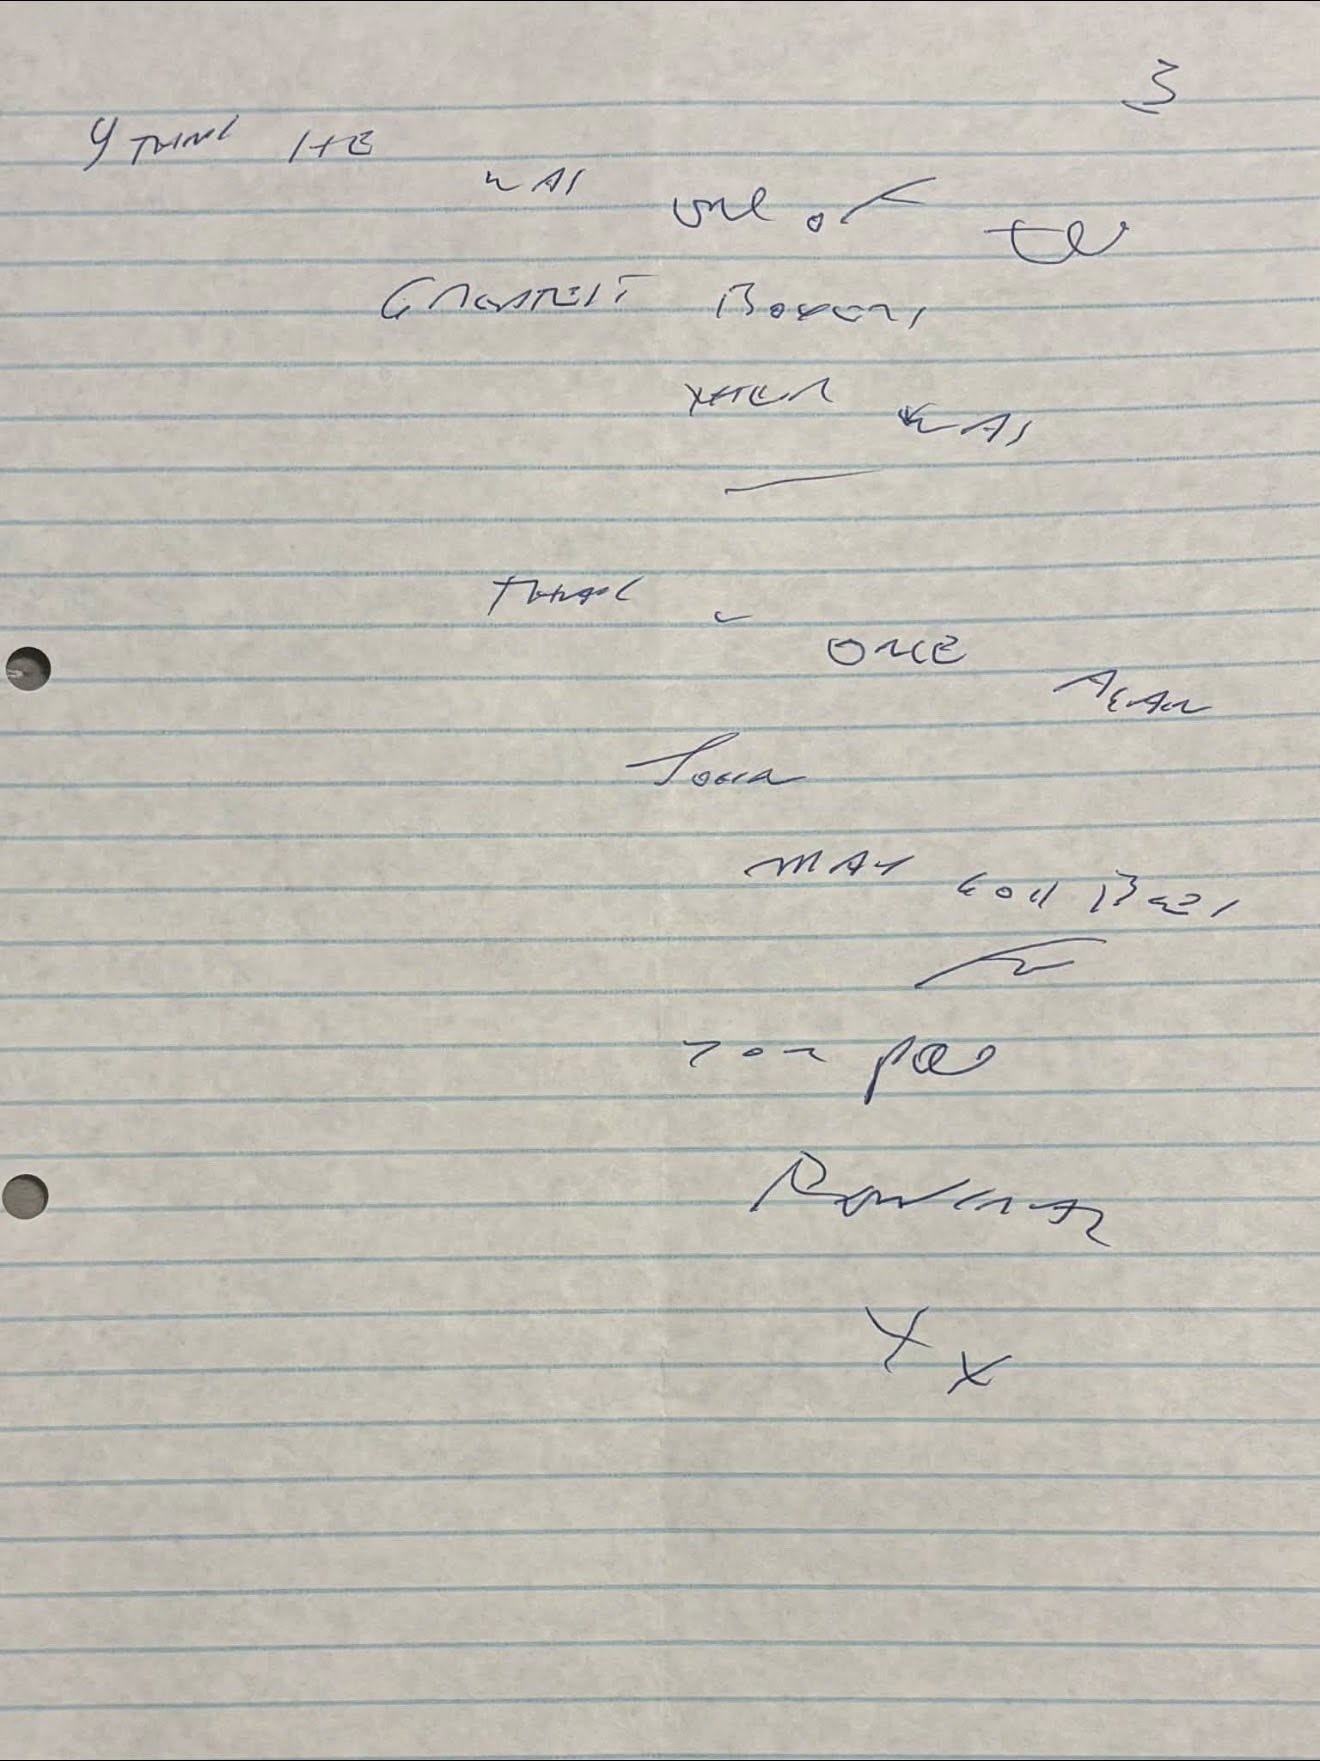 3
I THINK HE WAS one of the
GREATEST BOXERS
THER WAS
THANK U ONCE AGAIN
MAY GOD BLESS
YOU PAL